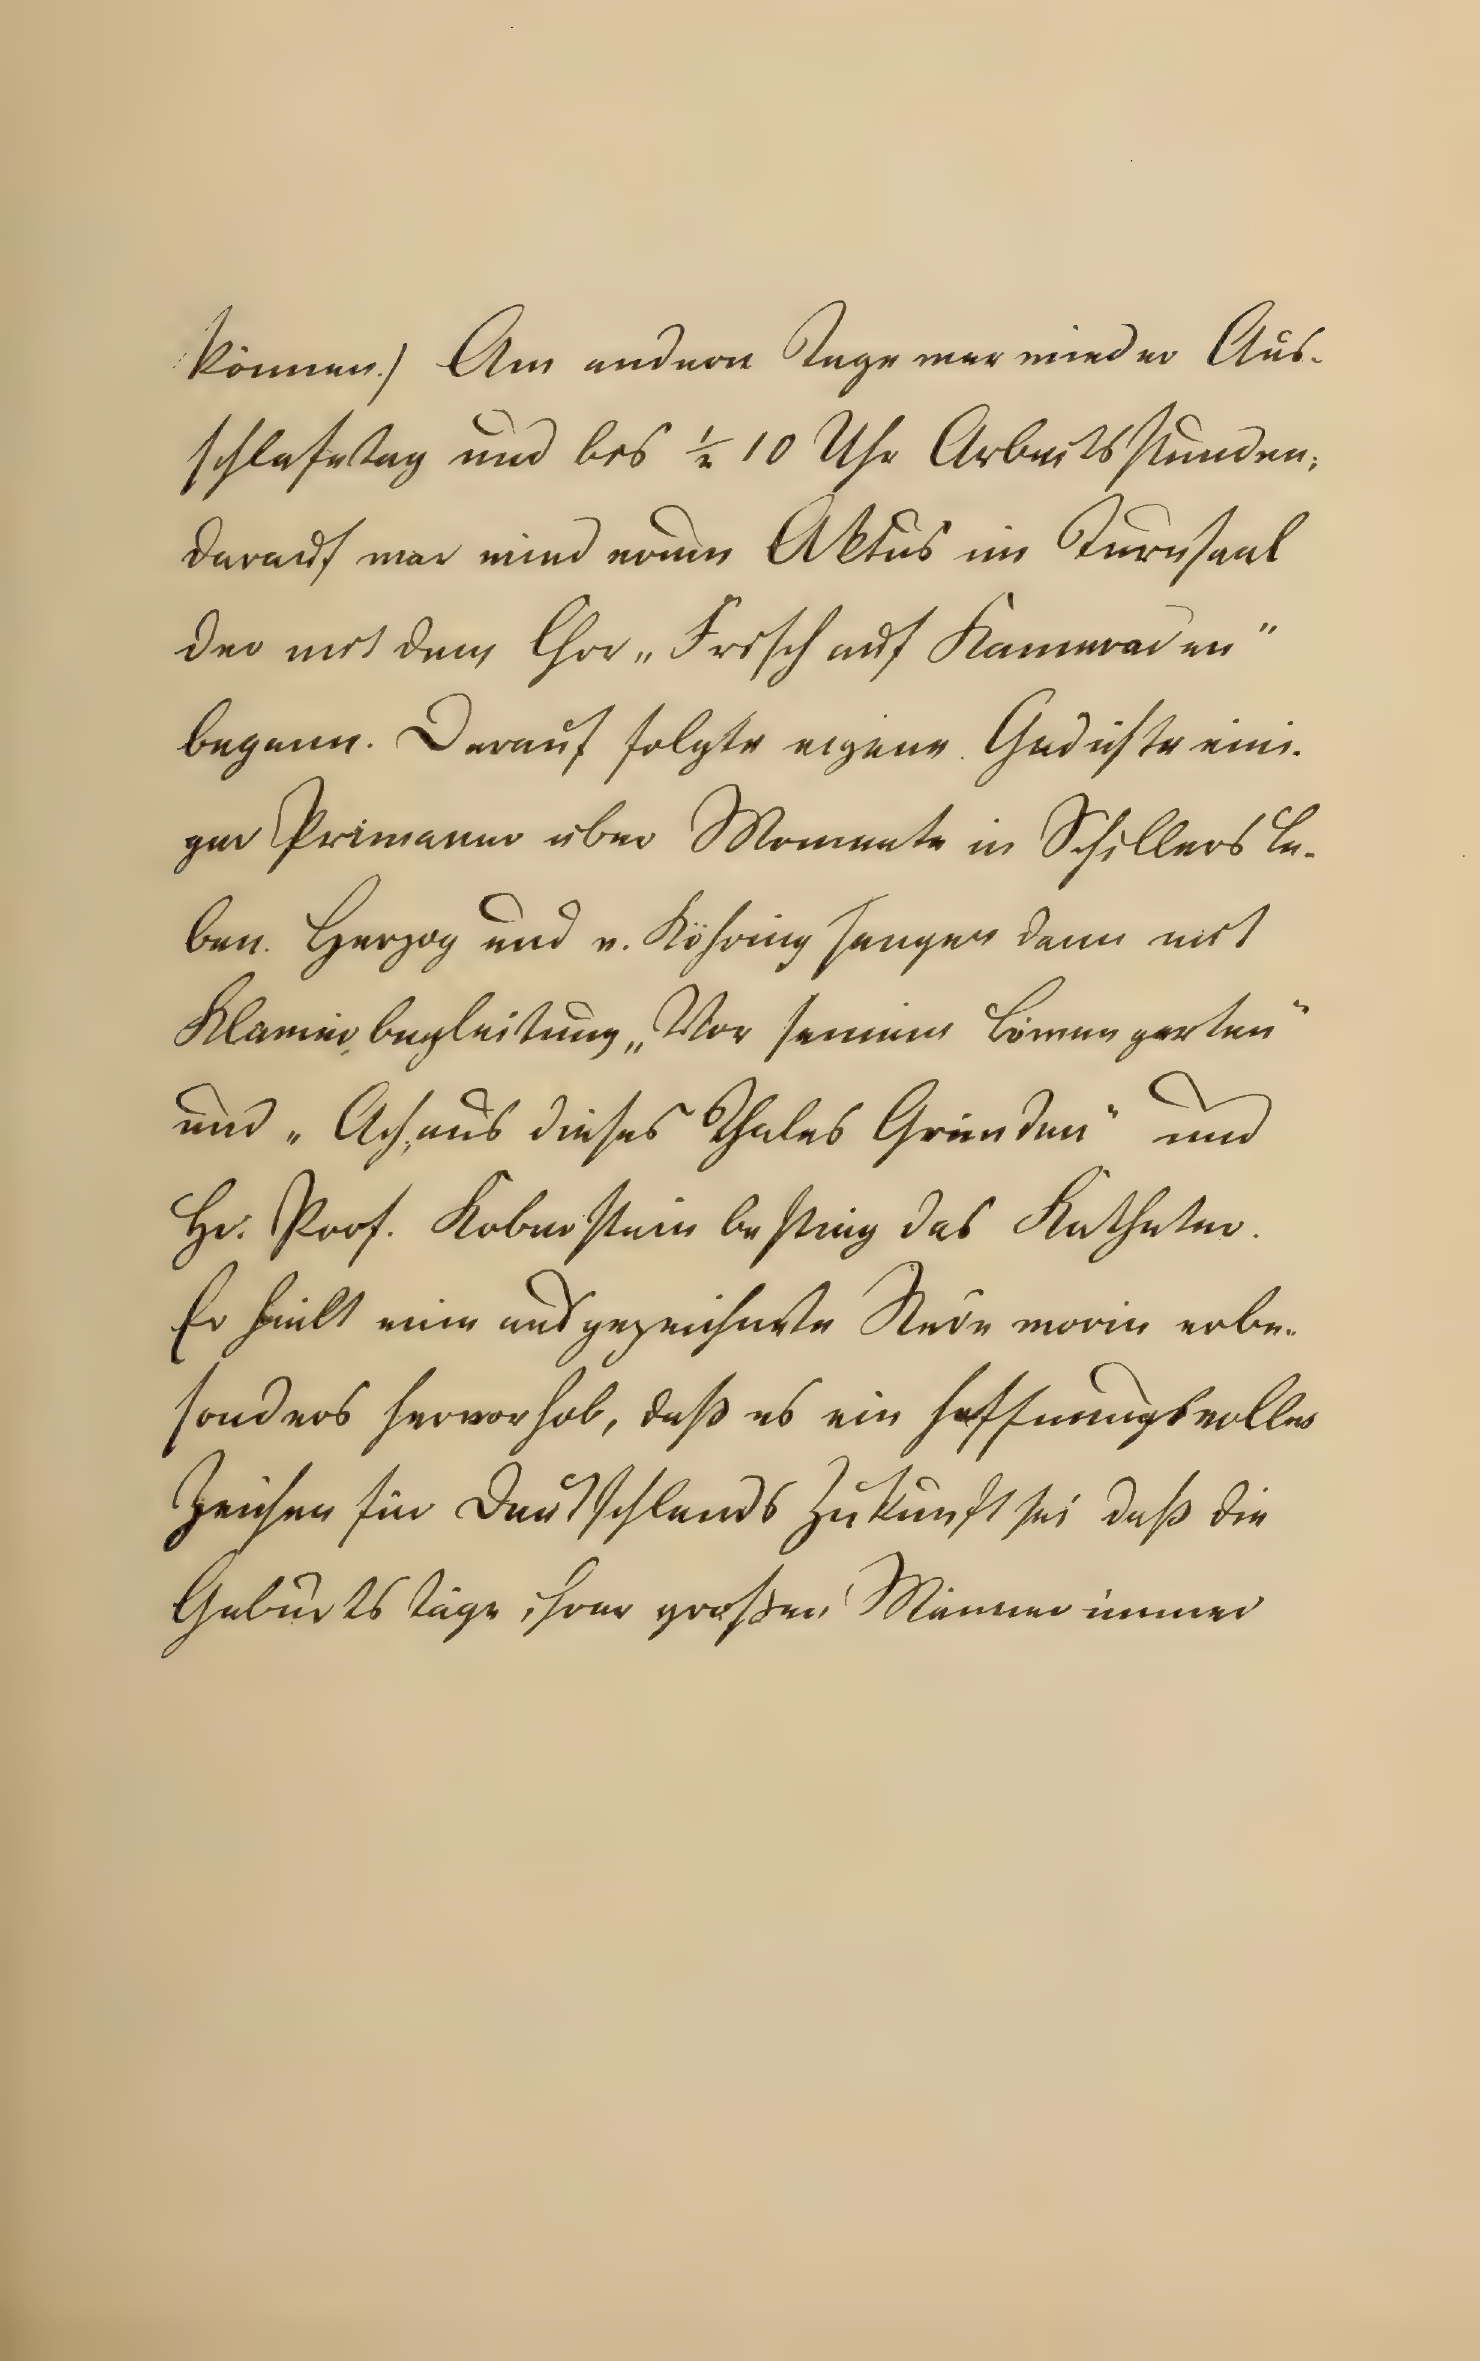 können.) Am andern Tage war wieder Aus-
schlafetag und bis ½ 10 Uhr Arbeitsstunden;
darauf war wiederum Aktus im Turnsaal
der mit dem Chor „Frisch auf Kameraden"
begann. Darauf folgte eigene Gedichte eini-
ger Primaner über Momente in Schillers Le-
ben. Herzog und v. Köhring sangen dann mit
Klavierbegleitung „Vor seinem Löwengarten"
und „Ach, aus dieses Thales Gründen" und
Hr. Prof. Koberstein bestieg das Katheter.
Er hielt eine ausgezeichnete Rede worin er be-
sonders hervorhob, daß es ein hoffnungsvolles
Zeichen für Deutschlands Zukunft sei daß die
Geburtstäge ihrer großen Männer immer